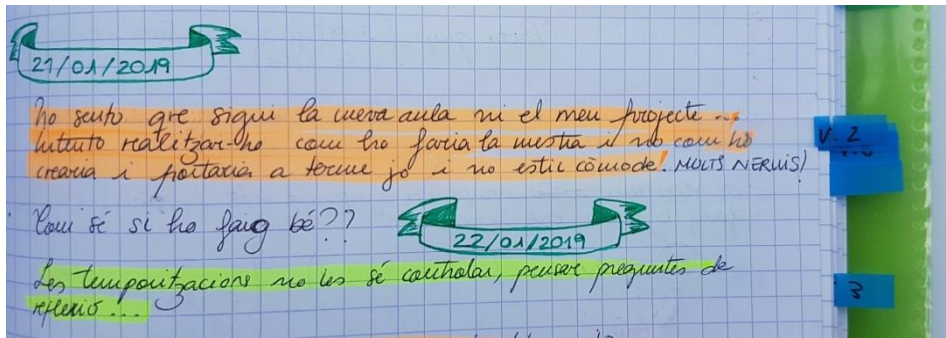 21/01/2019
No sento que sigui la meva aula ni el meu projecte...
Intento realitzar-ho com ho faria la mestra i no com ho
crearia i portaria a terme jo i no estic còmode! MOLTS NERVIS!
V. 2
Com sé si ho faig bé??
22/01/2019
Les temporitzacions no les sé controlar, pensar preguntes de
reflexió...
3